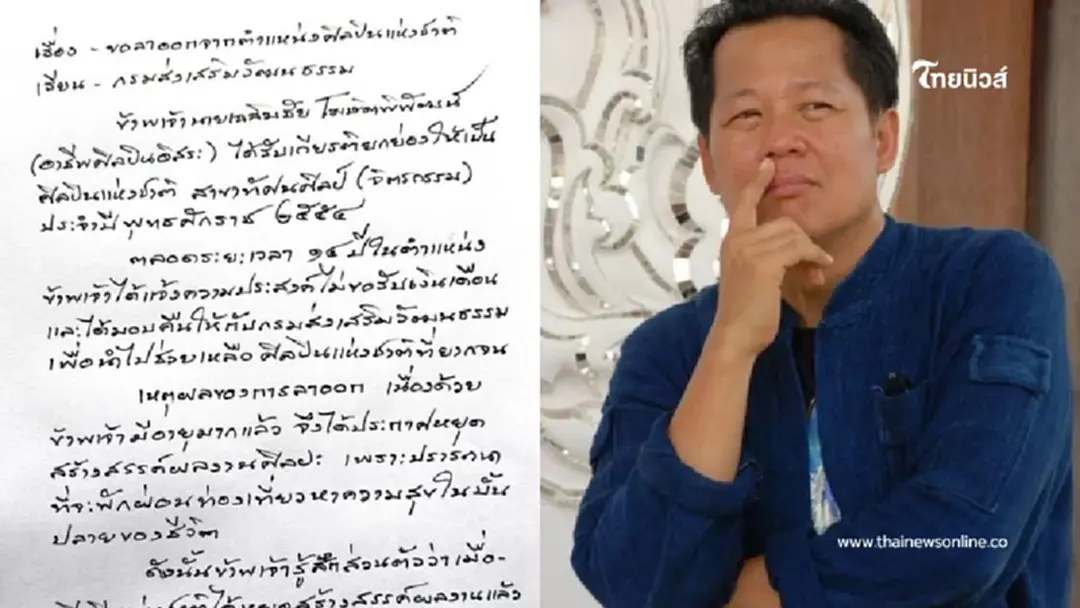 เรื่อง - ขอลาออกจากตำแหน่งศิลปินแห่งชาติ
เรียน - กรมส่งเสริมวัฒนธรรม
ข้าพเจ้านายเฉลิมชัย โฆษิตพิพัฒน์
(อาชีพศิลปินอิสระ) ได้รับเกียรติยกย่องให้เป็น
ศิลปินแห่งชาติ สาขาทัศนศิลป์ (จิตรกรรม)
ประจำปี พุทธศักราช ๒๕๕๔
ตลอดระยะเวลา ๑๔ ปีในตำแหน่ง
ข้าพเจ้าได้แจ้งความประสงค์ไม่ขอรับเงินเดือน
และได้มอบคืนให้กับกรมส่งเสริมวัฒนธรรม
เพื่อนำไปช่วยเหลือศิลปินแห่งชาติที่ยากจน
เหตุผลของการลาออก เนื่องด้วย
ข้าพเจ้ามีอายุมากแล้ว จึงได้ประกาศหยุด
สร้างสรรค์ผลงานศิลปะ เพราะปรารถนา
ที่จะพักผ่อนท่องเที่ยวหาความสุขในบั้น
ปลายของชีวิต
ดังนั้นข้าพเจ้ารู้สึกส่วนตัวว่าเมื่อ-
ได้หยุดสร้างสรรค์ผลงานแล้ว
ไทยนิวส์
www.thainewsonline.co